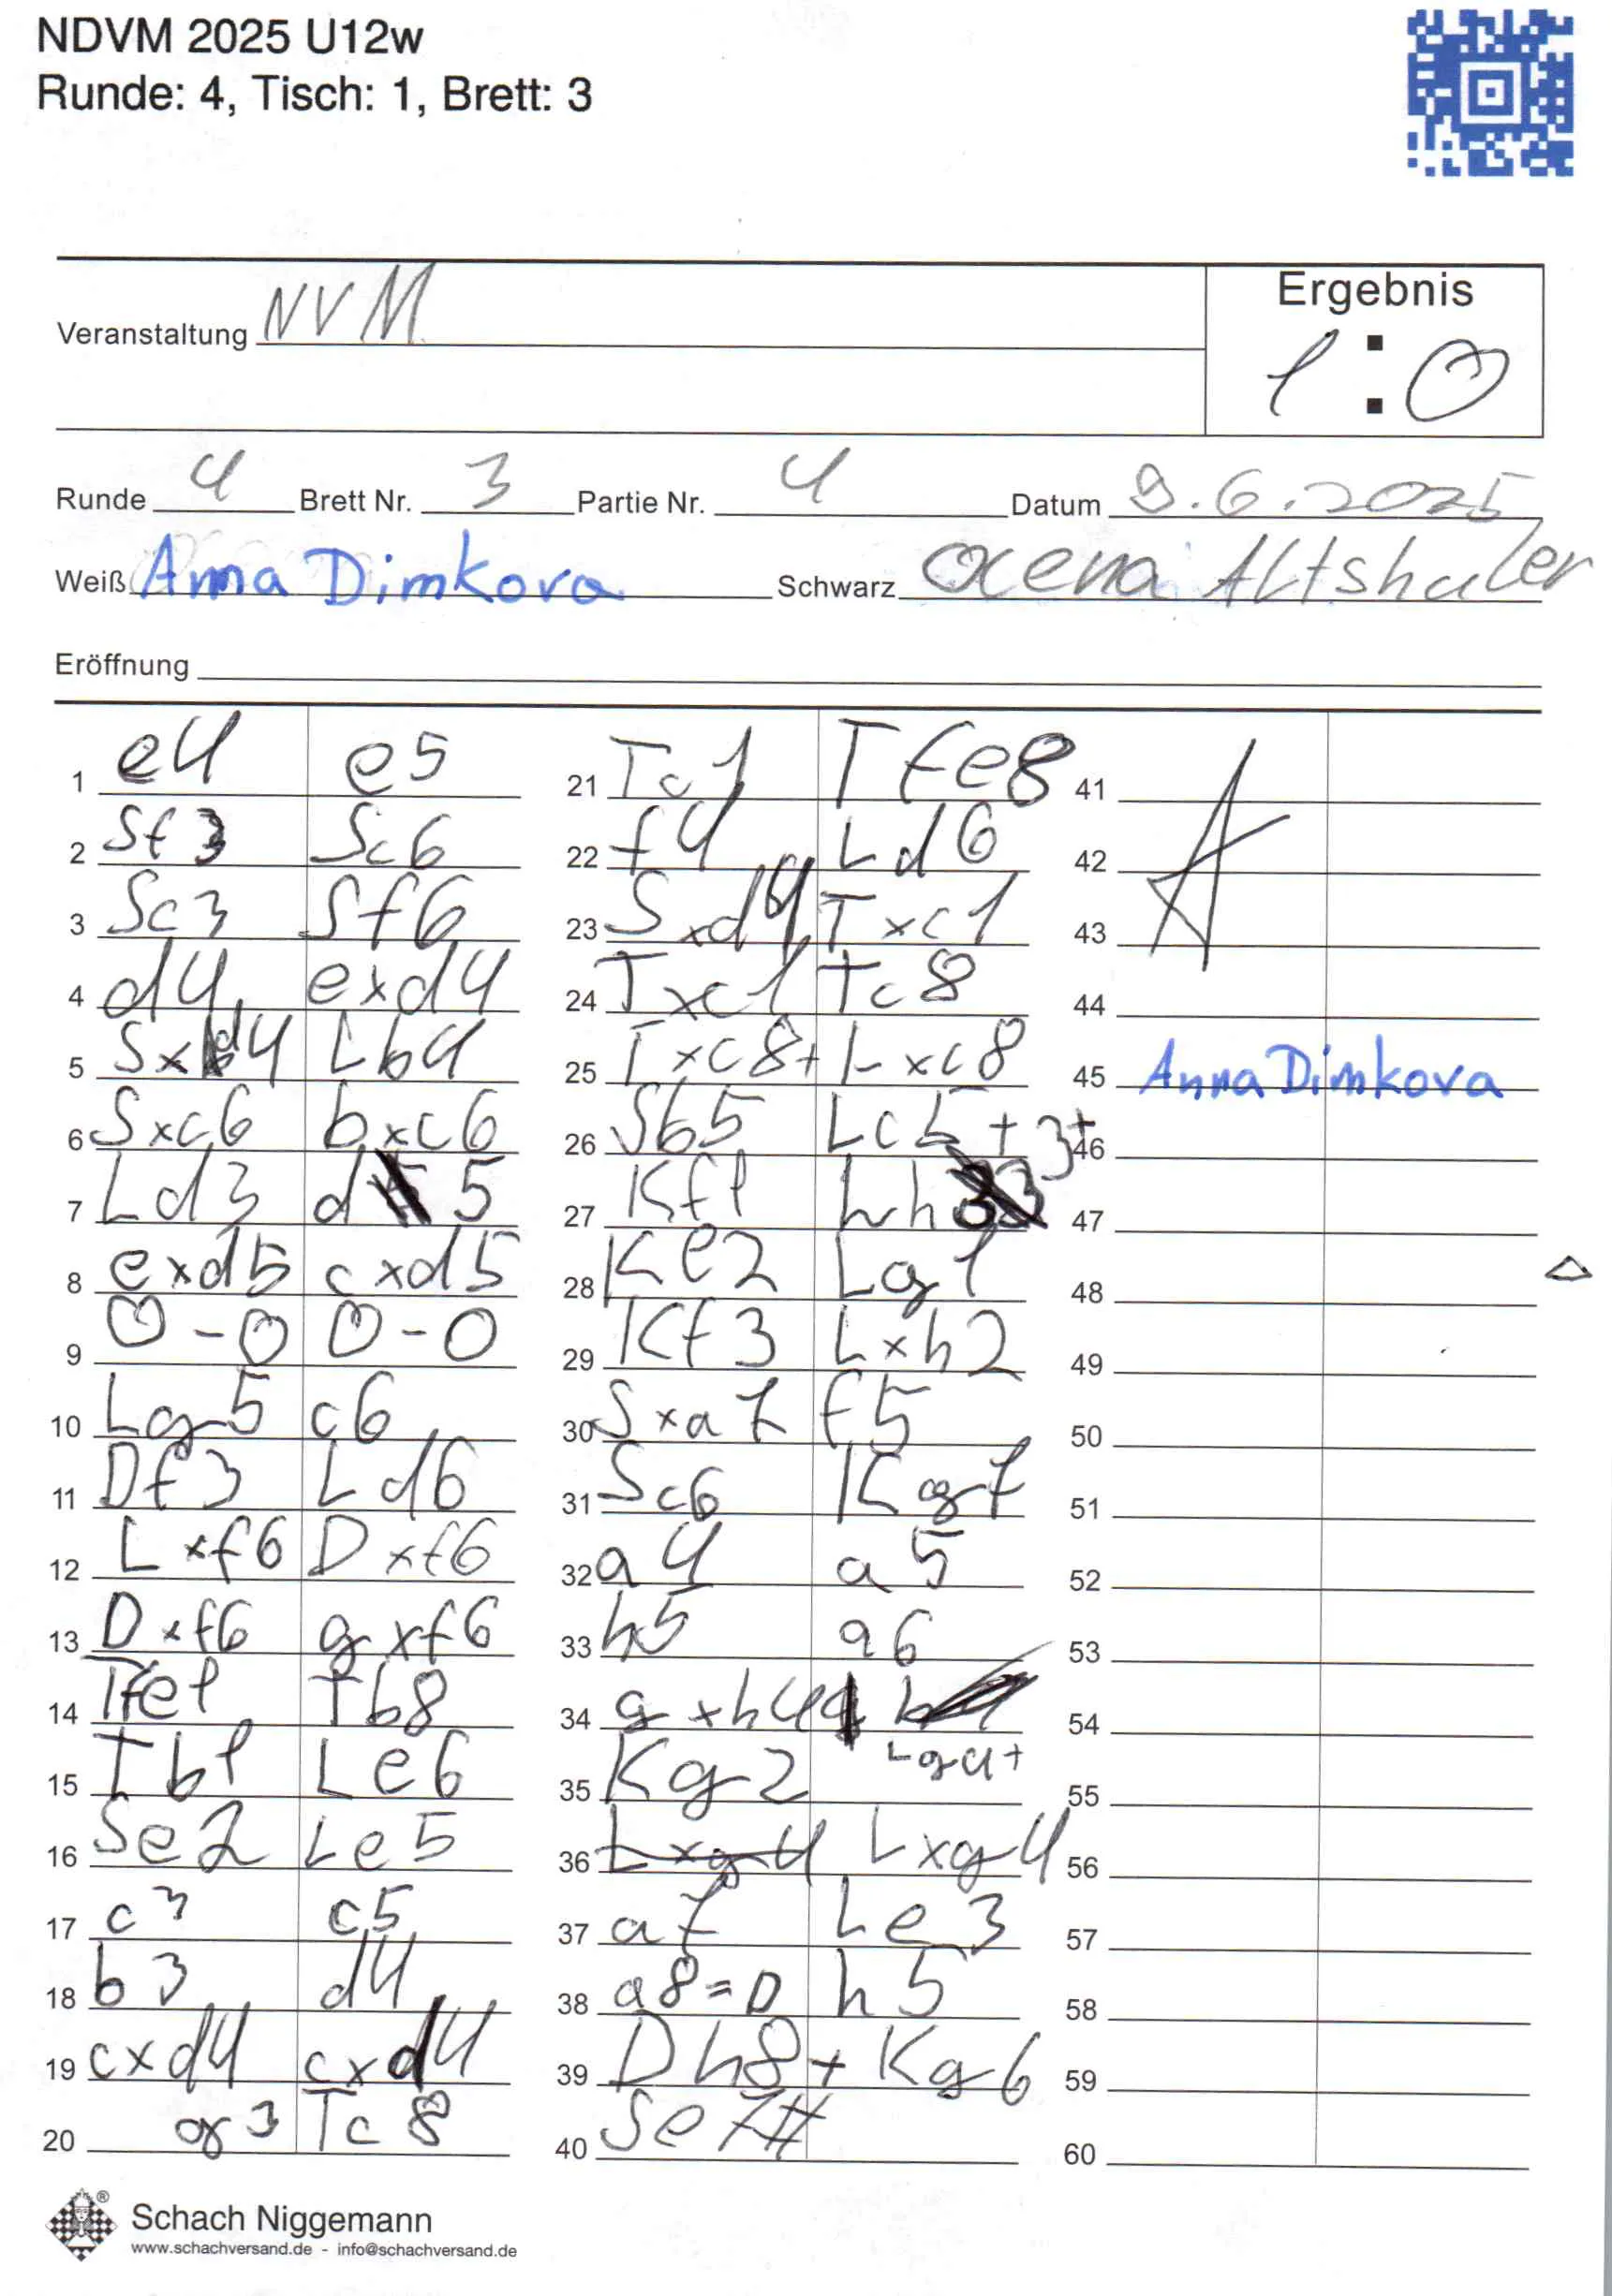 NDVM 2025 U12w
Runde: 4, Tisch: 1, Brett: 3
Veranstaltung NVM
Ergebnis
1 : 0
Runde 4 Brett Nr. 3 Partie Nr. 4 Datum 9.6.2025
Weiß Anna Dimkova Schwarz Altshuler
Eröffnung
1 e4 e5
2 Sf3 Sc6
3 Sc3 Sf6
4 d4 exd4
5 Sxd4 Lb4
6 Sxc6 bxc6
7 Ld3 d5
8 exd5 cxd5
9 0-0 0-0
10 Lg5 c6
11 Df3 Ld6
12 Lxf6 Dxf6
13 Dxf6 gxf6
14 Tfe1 Tb8
15 Tb1 Le6
16 Se2 Le5
17 c3 c5
18 b3 d4
19 cxd4 cxd4
20 g3 Tc8
21 Tc1 Tfe8
22 f4 Ld6
23 Sxd4 Txc1
24 Txc1 Tc8
25 Txc8+ Lxc8
26 Sb5 Lc5+
27 Kf1 Lh3+
28 Ke2 Lg1
29 Kf3 Lxh2
30 Sxa7 f5
31 Sc6 Kg7
32 a4 a5
33 h5 a6
34 gxh4 Lg4+
35 Kg2
36 Lxg4 Lxg4
37 a7 Le3
38 a8=D h5
39 Dh8+ Kg6
40 Se7#
41
42
43
44
45 Anna Dimkova
46
47
48
49
50
51
52
53
54
55
56
57
58
59
60
Schach Niggemann
www.schachversand.de - info@schachversand.de